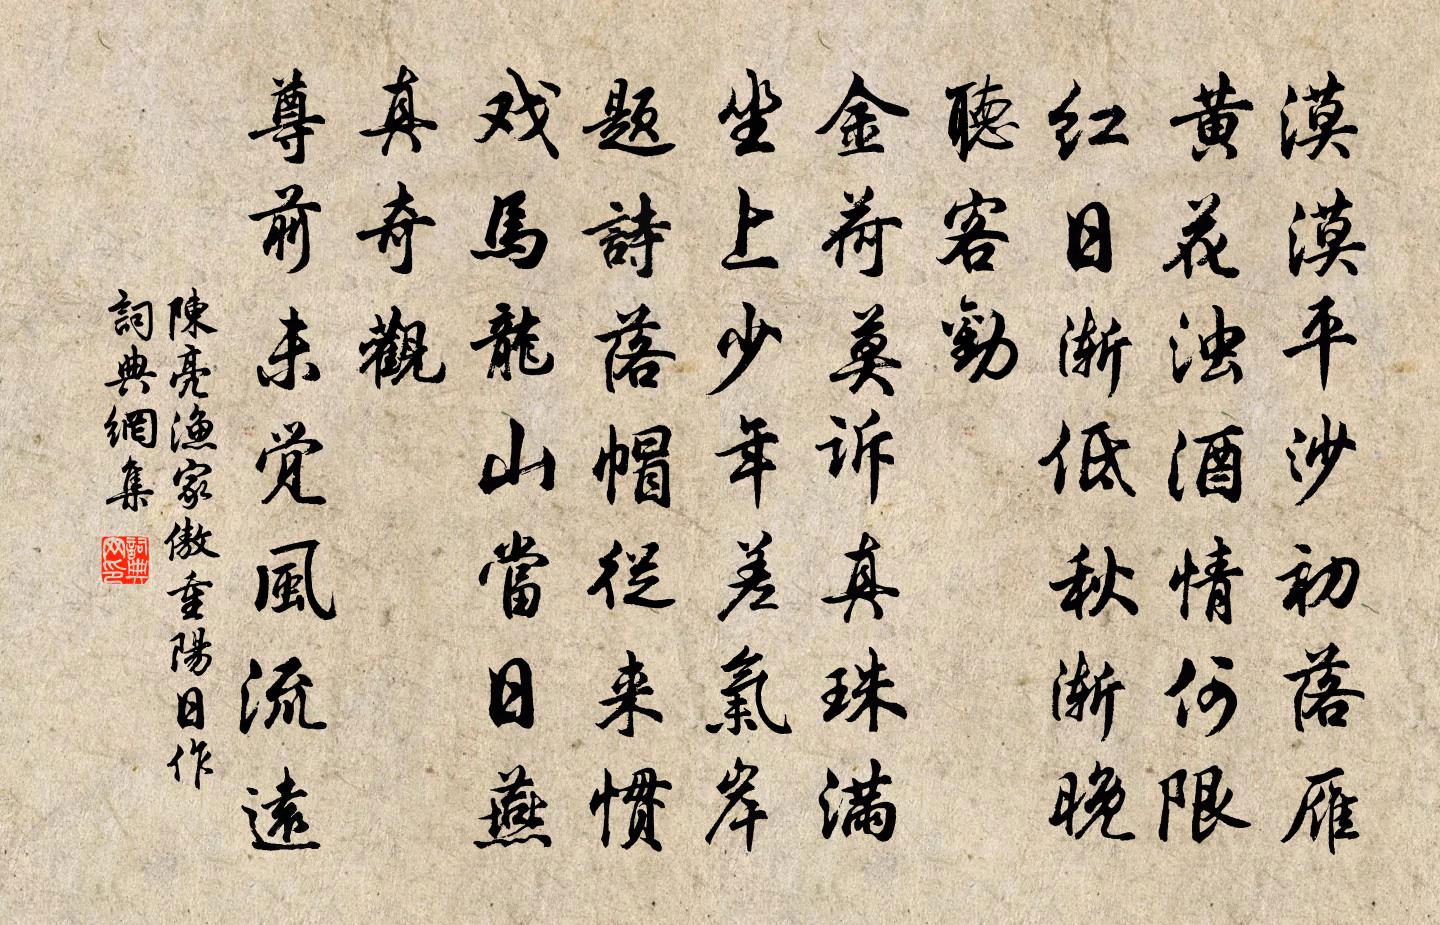 漠漠平沙初落雁
黄花浊酒情何限
红日渐低秋渐晚
聽客勸
金荷莫诉真珠滿
坐上少年差氣岸
题詩落帽從来惯
戏馬龍山當日燕
真奇觀
尊前未觉風流遠
陳亮漁家傲重陽日作
詞典網集
詞典网印